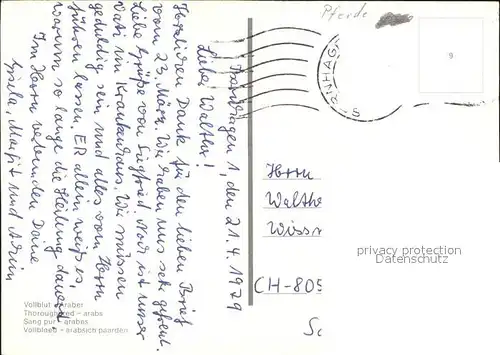 Pferde
RNHAG
9
5
den 21.4.1979
Lieber Walther!
Herzlichen Dank für den lieben Brief
vom 23. März. Wir haben uns sehr gefreut.
Liebe Grüße von Siegfried. Noch ist unser
Vati im Krankenhaus. Wir müssen
geduldig sein und alles vom Herrn
führen lassen. ER allein weiß es,
warum so lange die Heilung dauert.
Im Herrn verbunden Deine
Gisela, Margit und Armin
Herrn
Walthe
Wissm
CH-805
Sc
privacy protection
Datenschutz
Vollblut - Araber
Thoroughbred - arabs
Sang pur - arabes
Volbloed - arabisch paarden